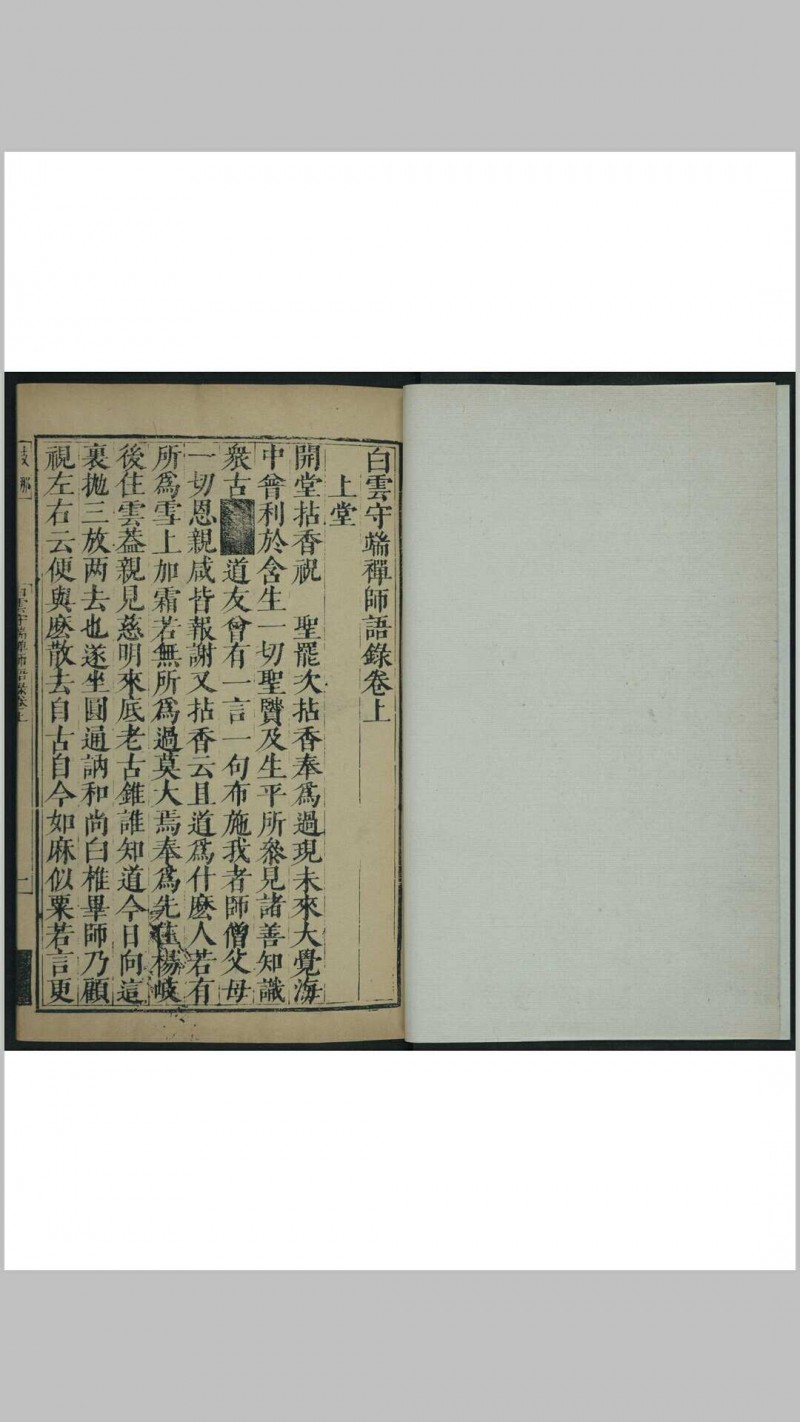 白雲守端禪師語錄卷上
上堂
開堂拈香祝　聖罷次拈香奉爲過現未來大覺海
中曾利於含生一切聖賢及生平所叅見諸善知識
衆古道友曾有一言一句布施我者師僧父母
一切恩親咸皆報謝又拈香云且道爲什麽人若有
所爲雪上加霜若無所爲過莫大焉奉爲先住楊岐
後住雲葢親見慈明來底老古錐誰知道今日向這
裏拋三放两去也遂坐圓通訥和尚白椎畢師乃顧
視左右云便與麽散去自古自今如麻似粟若言更
白雲守端禪師語錄卷上
一